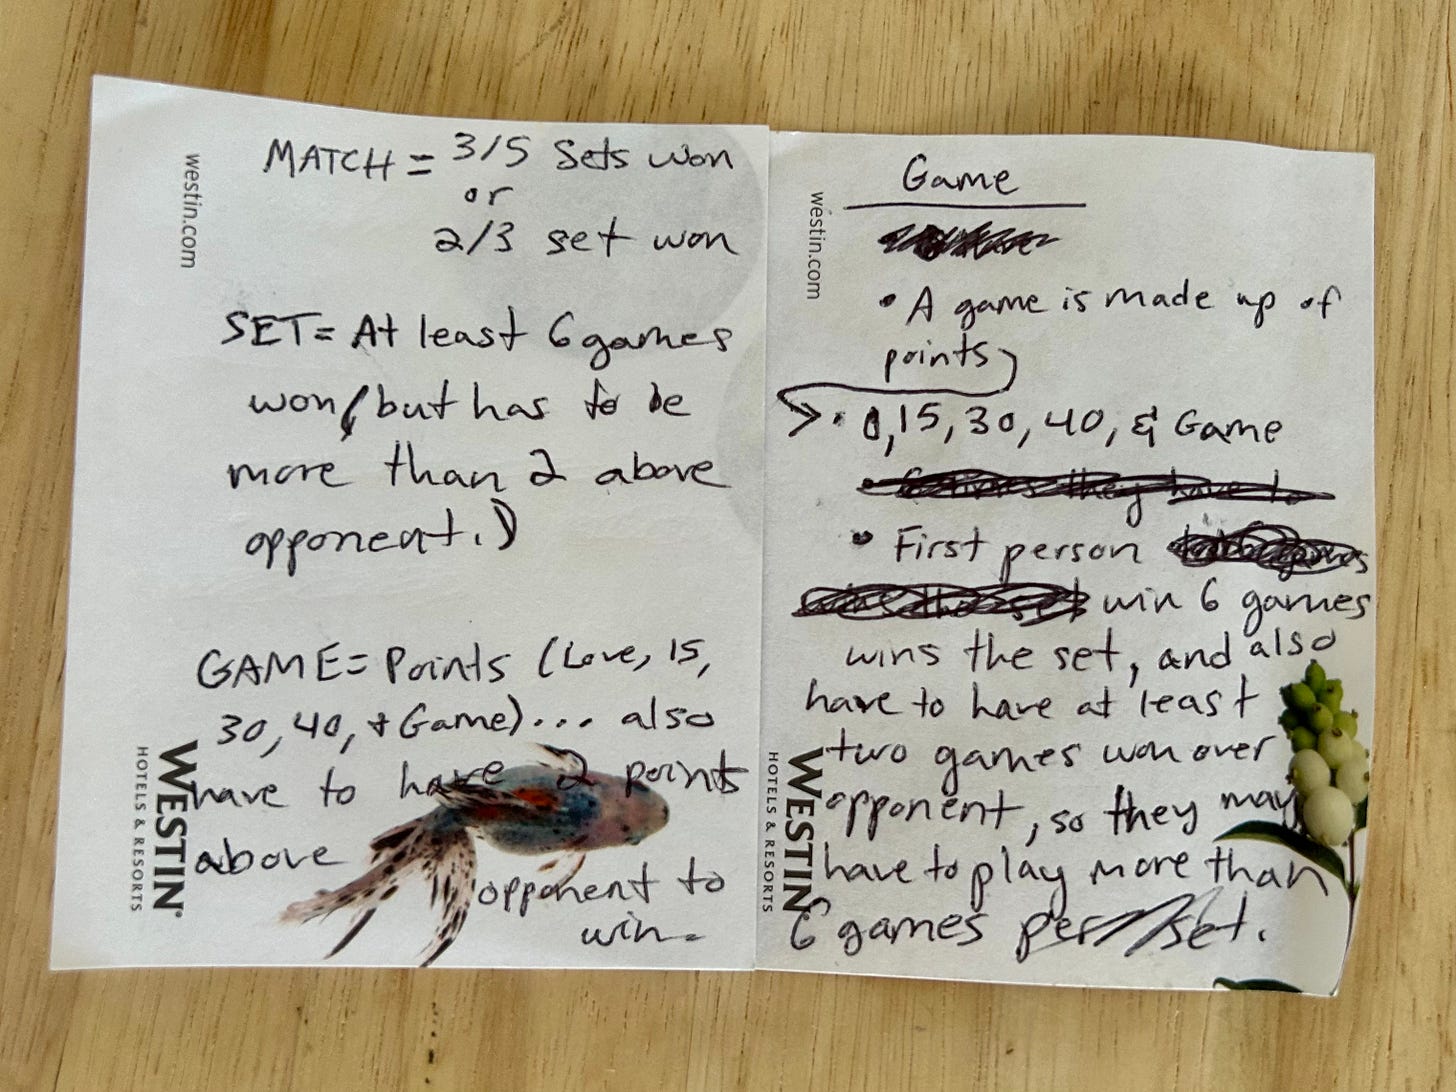 westin.com
MATCH = 3/5 Sets won
or
2/3 set won
SET = At least 6 games
won (but has to be
more than 2 above
opponent.)
GAME = Points (Love, 15,
30, 40, + Game)... also
have to have 2 points
above
opponent to
win.
WESTIN
HOTELS & RESORTS
westin.com
Game
• A game is made up of
points
• 0, 15, 30, 40, & Game
• First person
win 6 games
wins the set, and also
have to have at least
two games won over
opponent, so they may
have to play more than
6 games per set.
WESTIN
HOTELS & RESORTS